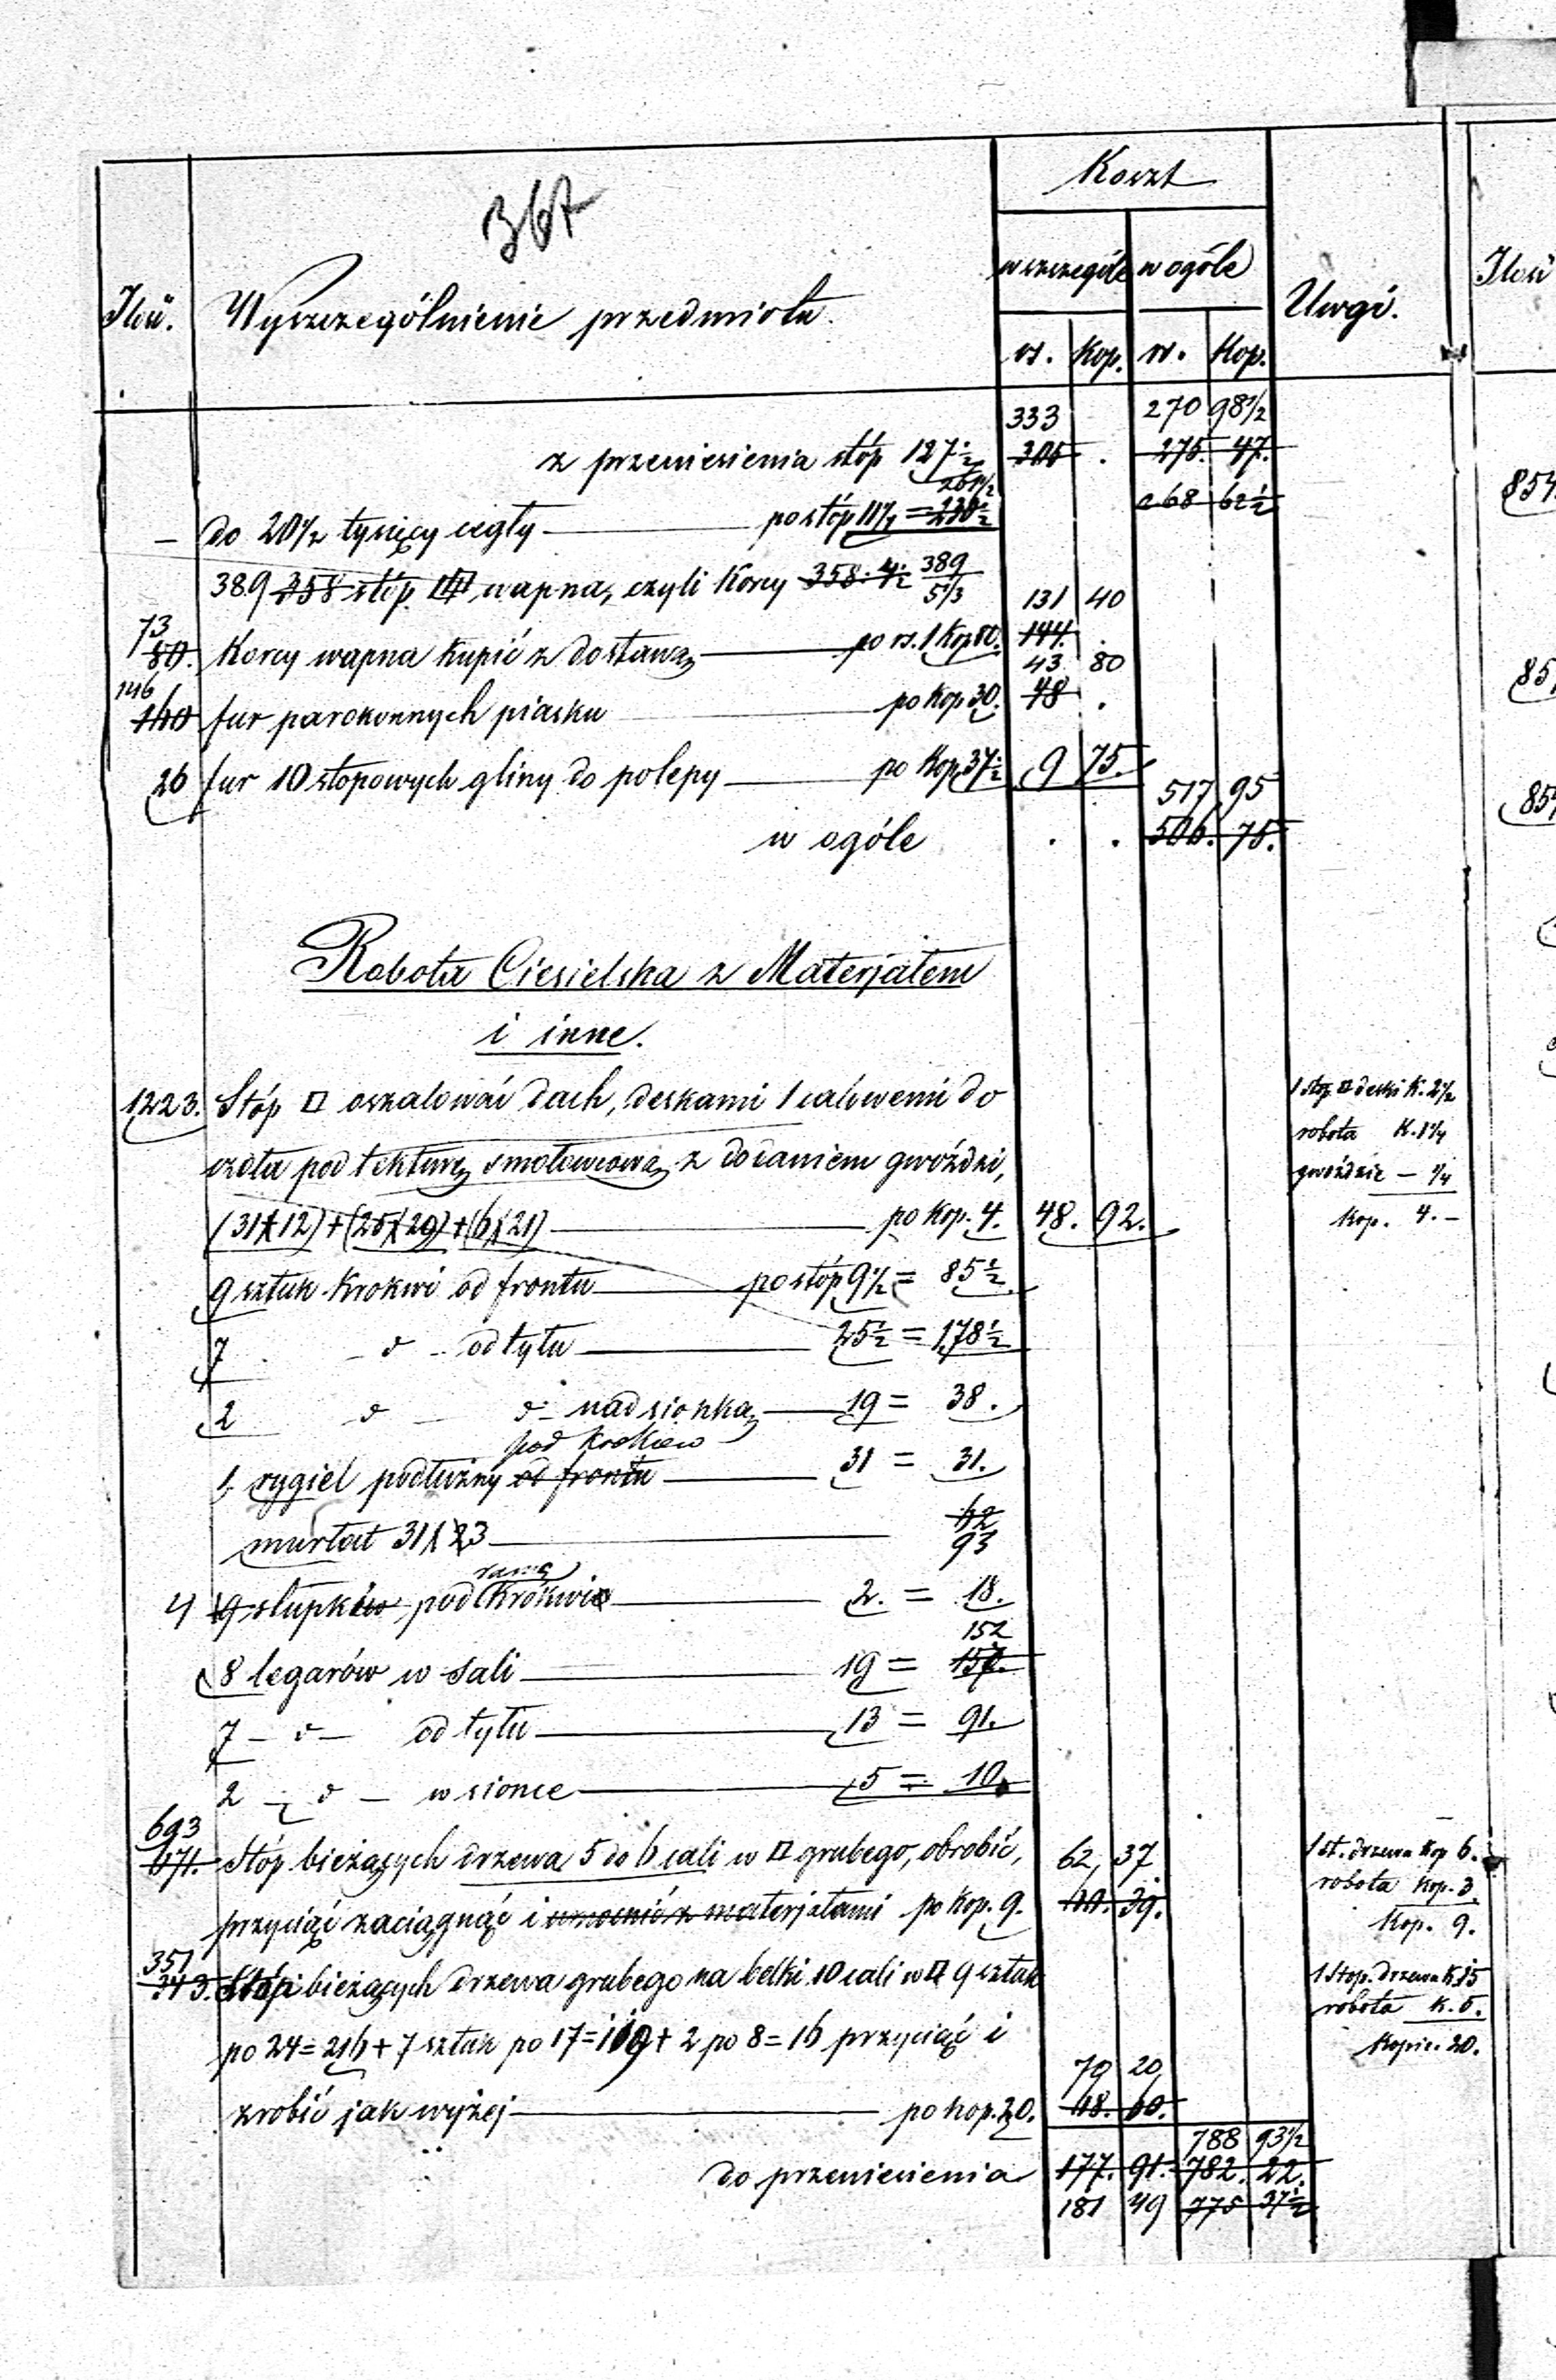 367
Koszt
w szczególe w ogóle
Ilość. Wyszczególnienie przedmiotu. Uwgi. Ilość
rs. Kop. rs. Kop.
333 270 98 1/2
z przeniesienia stóp 127 1/2 305 . 275. 47.
261 1/2 268 62 1/2
— do 20 1/2 tysięcy cegły — po stóp 11 1/2 = 230 1/2
389 358 stóp wapna, czyli Korcy 358: 4 1/2 389
5 1/3 131 40
73
80. Korcy wapna kupić z dostawą — po rs. 1 Kop 80. 144. .
146 43 80
160 fur parokonnych piasku — po Kop 30. 48 .
26 fur 10 stopowych gliny do polepy — po Kop 37 1/2 9 75.
517 95
w ogóle . . 506. 75.
Robota Ciesielska z Materjałem
i inne.
1223. Stóp □ oszalować dach, deskami 1 calowemi do 1 stop □ deski K. 2 1/2
robota K. 1 1/4
czoła pod tekturę smołowcową z dodaniem gwoździ, gwoździe — 1/4
(31X12)+(25X29)+(6X21) — po Kop. 4. 48. 92. Kop. 4. —
9 sztuk Krokwi od frontu — po stóp 9 1/2 = 85 1/2
7 — d — od tyłu — 25 1/2 = 178 1/2
2 d — d — nad sionką — 19 = 38.
pod krokiew
1 rygiel podłużny od frontu — 31 = 31.
62
murłat 31X23 — 93
ramę
4 9 słupków pod Krokwie — 2. = 18.
152
8 legarów w sali — 19 = 157.
7 — d — od tyłu — 13 = 91.
2 — d — w sionce — 5 = 10.
693
671. Stóp bieżących drzewa 5 do 6 cali w □ grubego, obrobić, 62, 37 1 st. drzewa Kop 6.
robota Kop. 3.
przyciąć zaciągnąć i umocnić z materjałami po Kop. 9. 60. 39. Kop. 9.
351
343. Stóp bieżących drzewa grubego na belki 10 cali w □ 9 sztuk 1 Stop. drzewa K. 15
robota K. 5.
po 24 = 216 + 7 sztuk po 17 = 119 + 2 po 8 = 16 przyciąć i Kopie. 20.
70 20
zrobić jak wyżej — po Kop. 20. 68. 60.
788 93 1/2
do przeniesienia 177. 91. 782. 22.
181 49 775 37 1/2